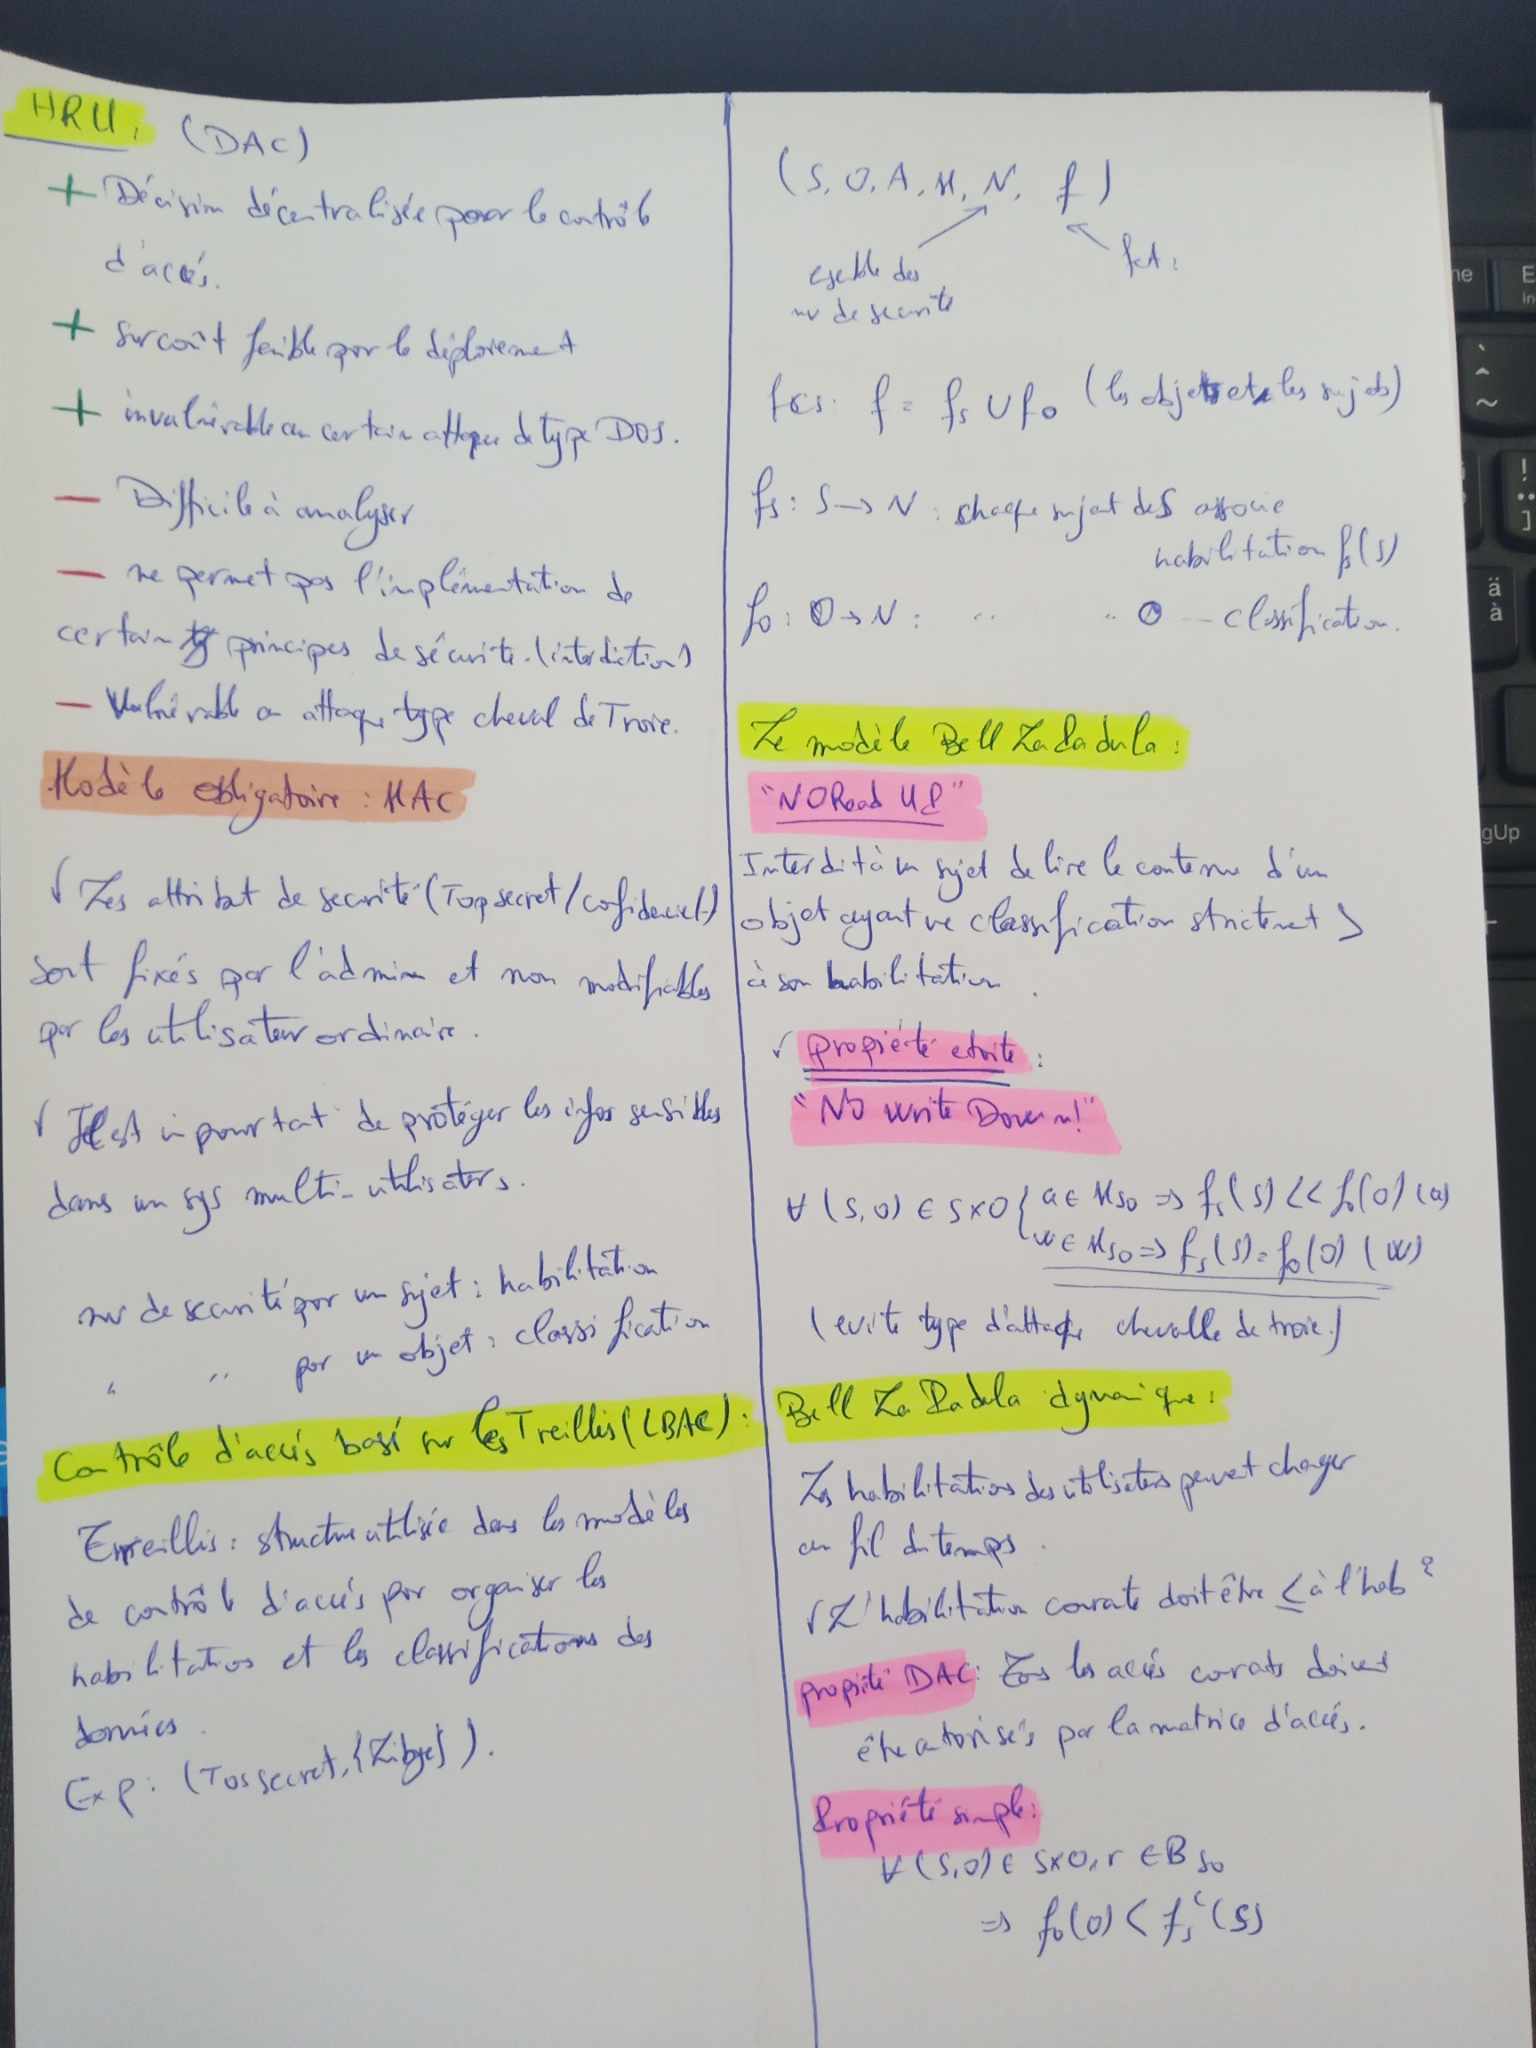 HRU: (DAC)
+ Décision décentralisée pour le contrôle
d'accés.
+ surcoût faible pour le déploiement
+ invulnérable au certain attaque de type DOS.
— Difficile à analyser
— ne permet pas l'implémentation de
certain principes de sécurité. (interdiction)
— Vulnérable au attaque type cheval de Troie.
Modèle obligatoire : MAC
√ Les attribut de securité (Top secret/confidenciel)
sont fixés par l'admin et non modifiables
par les utilisateur ordinaire.
√ Il est important de protéger les infos sensibles
dans un sys multi-utilisaters.
nv de securité pour un sujet : habilitation
" " pour un objet : classification
Contrôle d'accés basé sur les Treillis (LBAC) :
Treillis : structure utilisée dans les modèles
de contrôle d'accés pour organiser les
habilitations et les classifications des
données.
Exp : (Tossecret,{Libye}).
(S, O, A, M, N, f)
esemble des
nv de securité
fct :
fcs : f = fs ∪ fo (les objets et les sujets)
fs : S → N : chaque sujet de S associe
habilitation fs(s)
fo : O → N : " " O -- classification.
Le modèle Bell LaPadula :
"NO Read UP"
Interdit à un sujet de lire le contenu d'un
objet ayant une classification strictemet >
à son habilitation.
√ propiété etoite :
"NO write Down!"
∀ (s,o) ∈ S×O { a ∈ Mso => fs(s) << fo(o) (a)
w ∈ Mso => fs(s) = fo(o) (w)
(evite type d'attaque chevalle de troie.)
Bell LaPadula dynamique :
Les habilitations des utilisaters peuvet changer
au fil du temps.
√ L'habilitation courate doit être ≤ à l'hab
propiété DAC : Tous les accés courats doives
être autorisés par la matrice d'accés.
Propriété simple :
∀ (s,o) ∈ S×O, r ∈ Bso
=> fo(o) < fsᶜ(s)